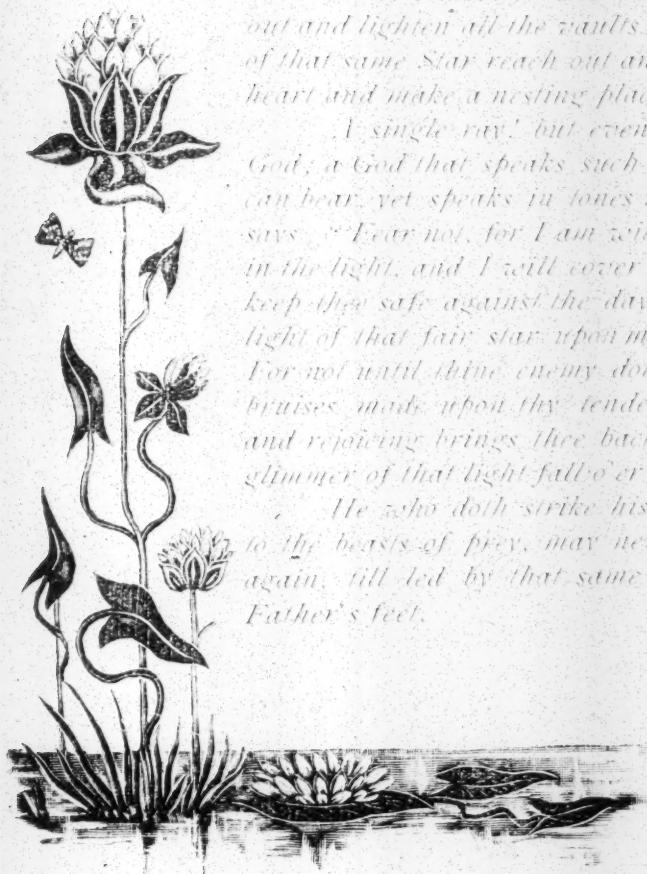 out and lighten all the vaults
of that same Star reach out an
heart and make a nesting plac
A single ray! but even
God; a God that speaks such
can bear, yet speaks in tones
says, "Fear not, for I am wi
in the light, and I will cover
keep thee safe against the da
light of that fair star upon m
For not until thine enemy do
bruises made upon thy tende
and rejoicing brings thee bac
glimmer of that light fall o'er
He who doth strike his
to the beasts of prey, may ne
again, till led by that same
Father's feet.